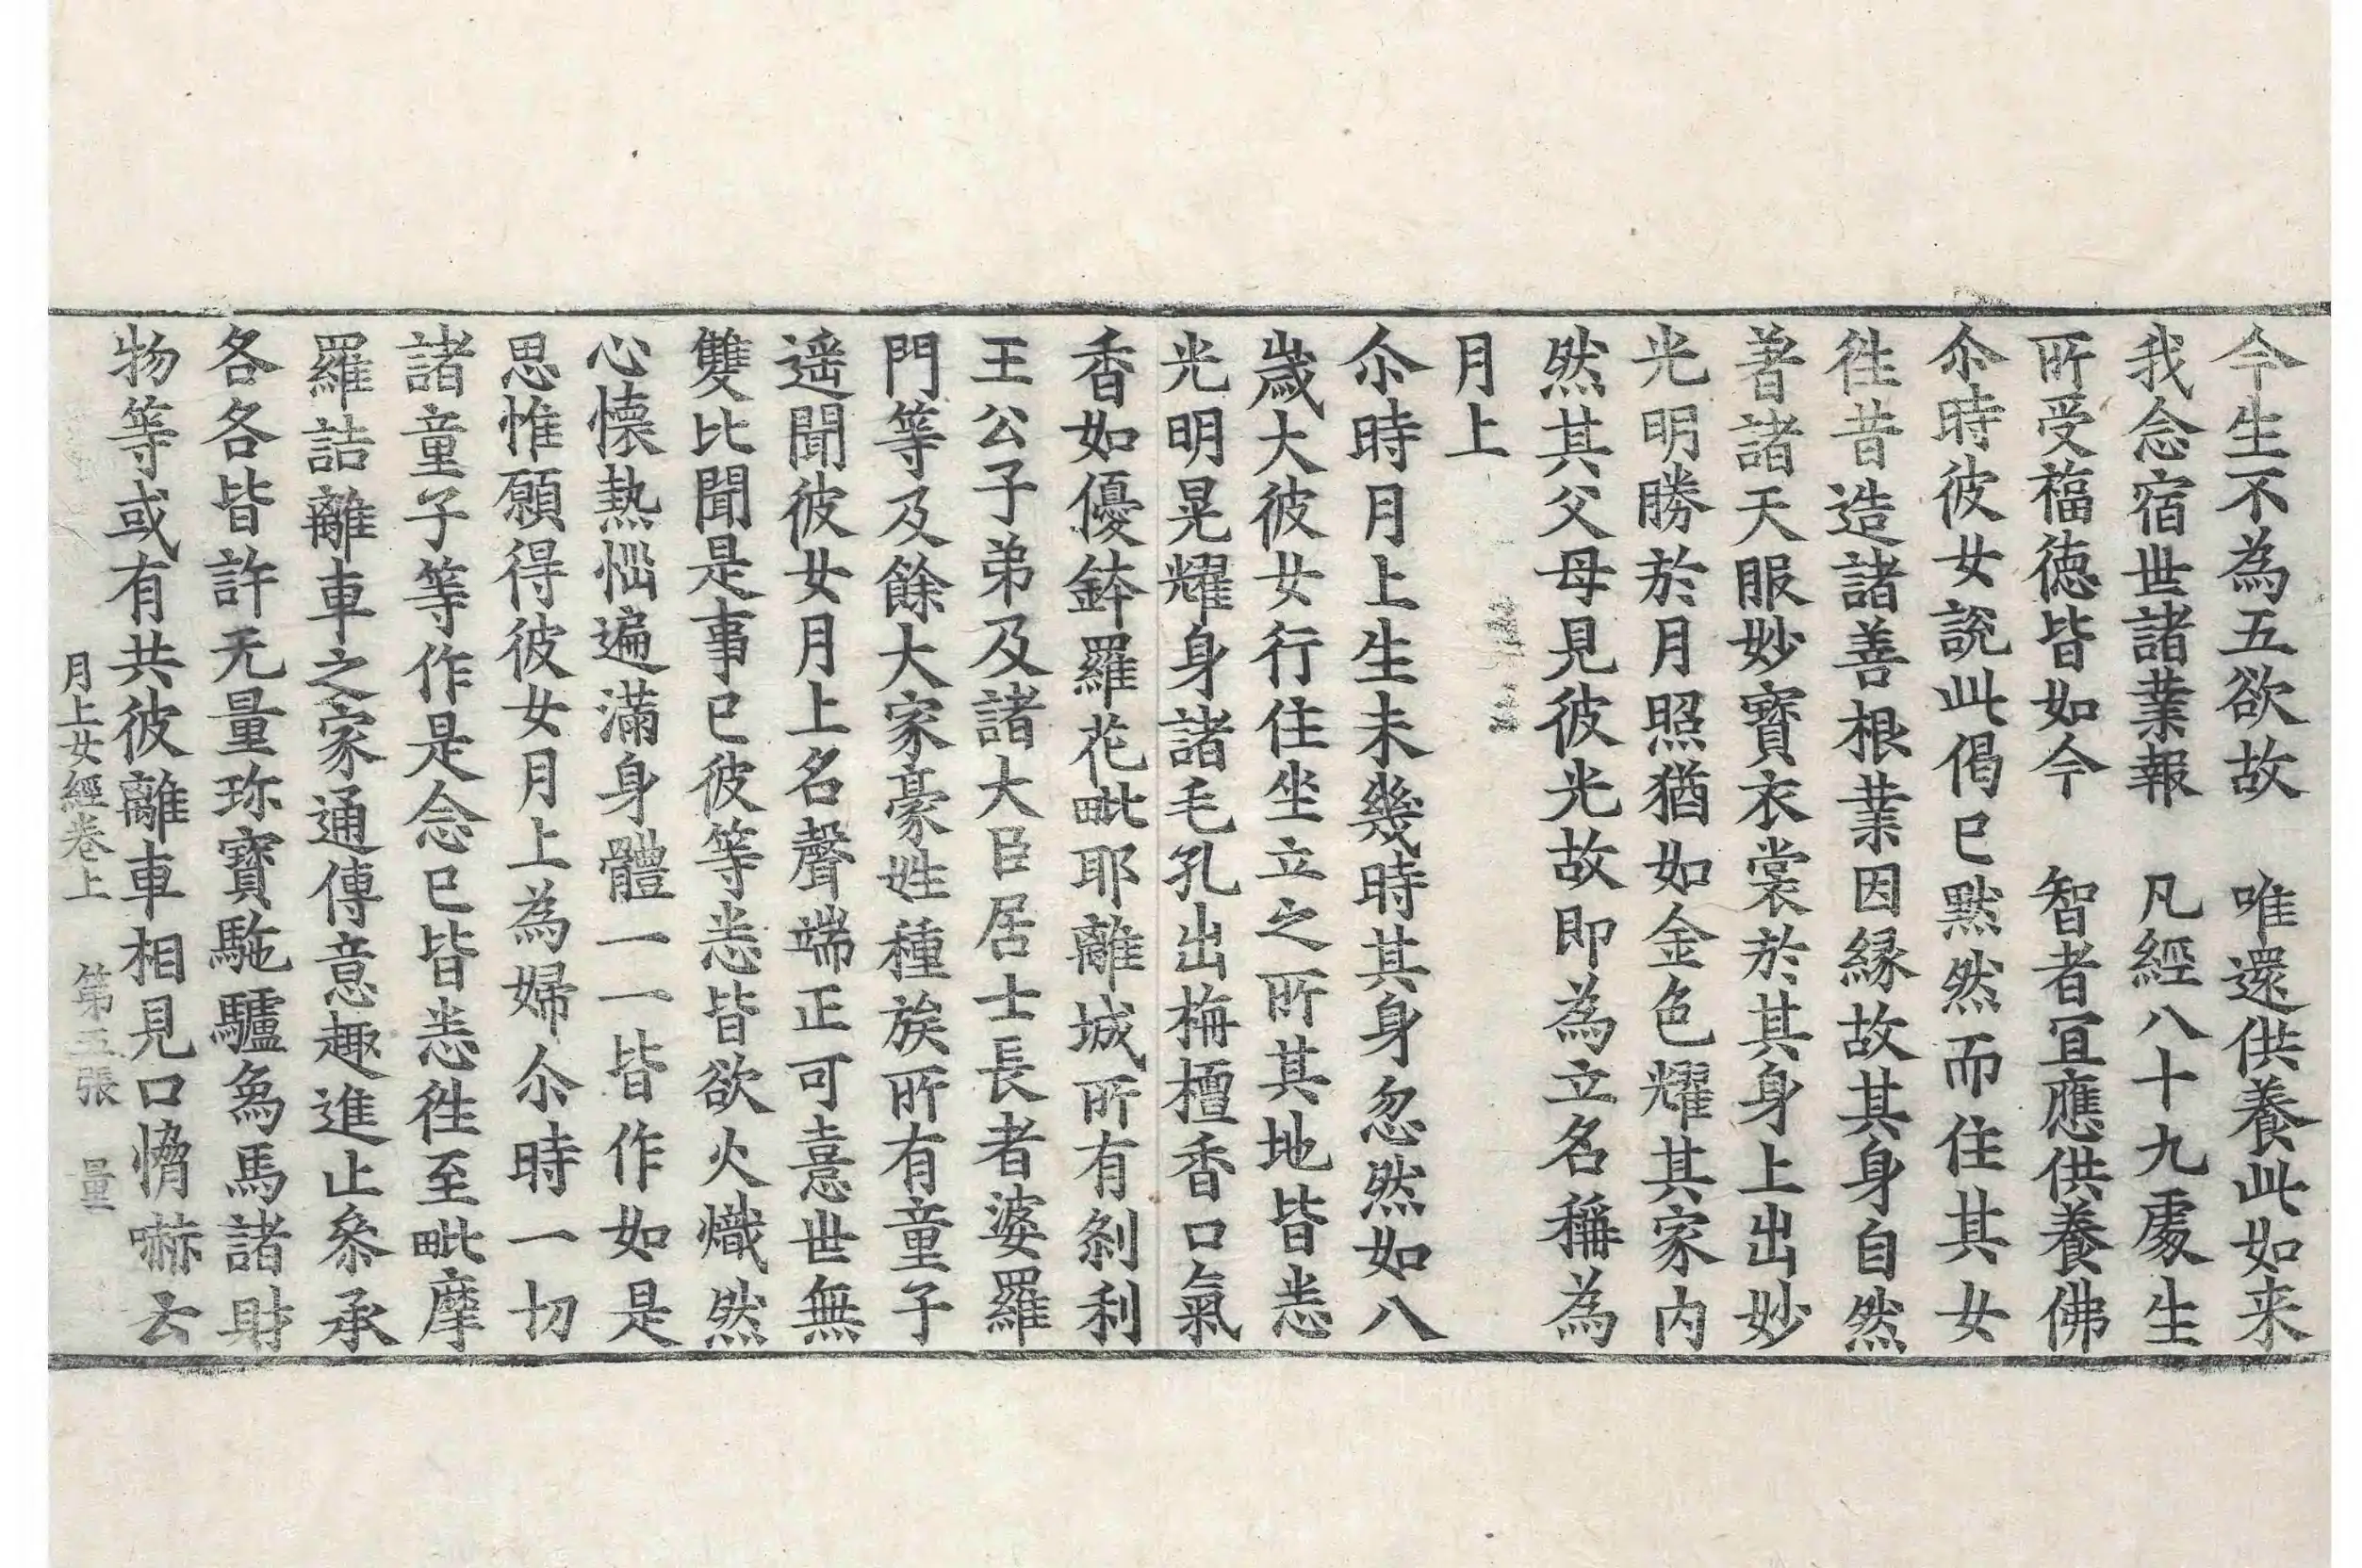 今生不為五欲故　唯還供養此如来
我念宿世諸業報　凡經八十九處生
所受福德皆如今　智者宜應供養佛
尒時彼女說此偈已默然而住其女
徃昔造諸善根業因緣故其身自然
著諸天服妙寳衣裳於其身上出妙
光明勝於月照猶如金色耀其家内
然其父母見彼光故即為立名稱為
月上
尒時月上生未幾時其身忽然如八
歲大彼女行住坐立之所其地皆悉
光明晃耀身諸毛孔出栴檀香口氣
香如優鉢羅花毗耶離城所有剎利
王公子弟及諸大臣居士長者婆羅
門等及餘大家豪姓種族所有童子
遥聞彼女月上名聲端正可憙世無
雙比聞是事已彼等悉皆欲火熾然
心懷熱惱遍滿身體一一皆作如是
思惟願得彼女月上為婦尒時一切
諸童子等作是念已皆悉徃至毗摩
羅詰離車之家通傳意趣進止叅承
各各皆許无量珎寳駞驢象馬諸財
物等或有共彼離車相見口憍嚇云
月上女經卷上　第五張　量